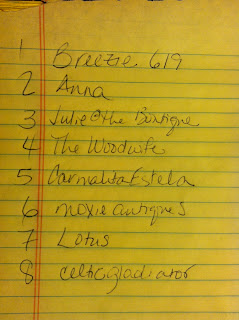 1 Breezie 619
2 Anna
3 Julie@the Boutique
4 The Woodwife
5 CarnalitaEstela
6 moxie antiques
7 Lotus
8 celticgladiator